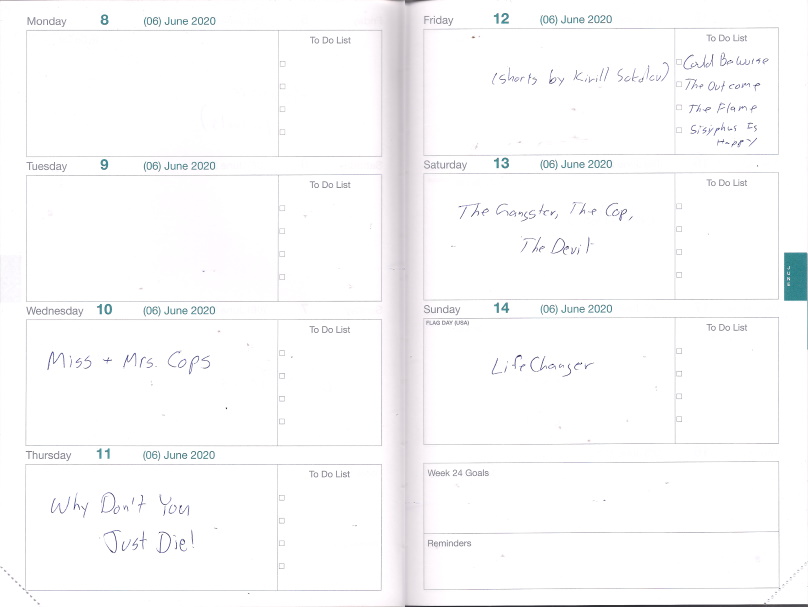 Monday 8 (06) June 2020
To Do List
Tuesday 9 (06) June 2020
To Do List
Wednesday 10 (06) June 2020
To Do List
Miss + Mrs. Cops
Thursday 11 (06) June 2020
To Do List
Why Don't You
Just Die!
Friday 12 (06) June 2020
To Do List
(shorts by Kirill Sokolov)
Could Be Worse
The Outcome
The Flame
Sisyphus Is
Happy
Saturday 13 (06) June 2020
To Do List
The Gangster, The Cop,
The Devil
Sunday 14 (06) June 2020
FLAG DAY (USA)
To Do List
Life Changer
Week 24 Goals
Reminders
JUNE